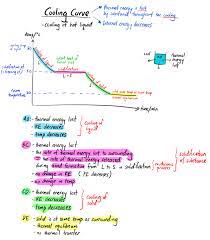 Cooling Curve
→ cooling of hot liquid
→ thermal energy is lost
to surrounding throughout the cooling
→ internal energy decreases
temp/°C
thermal energy
room temperature
L + S
time/min
AB: - thermal energy lost
- KE decreases
- temp decreases
cooling of liquid
BC: - thermal energy lost
- the rate of thermal energy lost to surrounding
= the rate of thermal energy released
during bond formation from L to S in solidification
- no change in KE (PE decreases)
- no change in temp
solidification of substance
CD: - thermal energy lost
- KE decreases
- temp decreases
cooling of solid
DE: - solid is at same temp as surrounding
- thermal equilibrium
- no thermal transfer